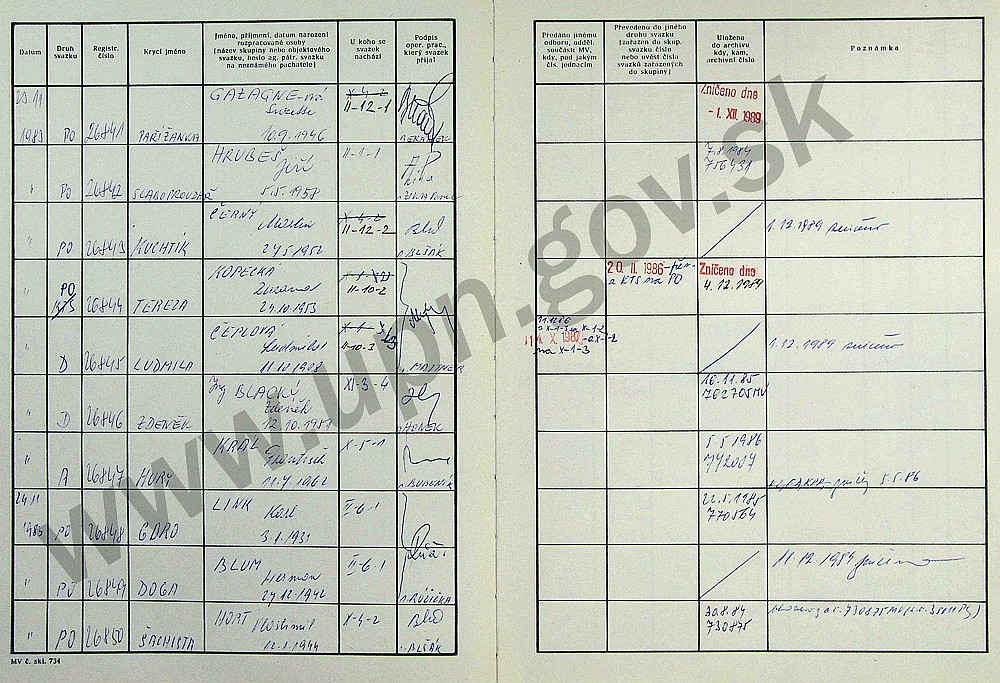 Datum
Druh svazku
Registr. číslo
Krycí jméno
Jméno, příjmení, datum narození
rozpracované osoby
(název skupiny nebo objektového
svazku, heslo ag. pátr. svazku
na neznámého pachatele)
U koho se
svazek
nachází
Podpis
oper. prac.,
který svazek
přijal
Předáno jinému
odboru, odděl.
součásti MV,
kdy, pod jakým
čís. jednacím
Převedeno do jiného
druhu svazku
(zařazen do skup.
svazku číslo
nebo uvést čísla
svazků zařazených
do skupiny)
Uloženo
do archivu
kdy, kam,
archivní číslo
Poznámka
23.11
1983 PO 26841 PAŘÍŽANKA
GAZAGNE-ová
10.9.1946
X-4-2
II-12-1
Zničeno dne
- 1. XII. 1989
" PO 26842 SLABOPROUDAŘ
HRUBEŠ
Jiří
5.5.1958
II-1-1
7.8.1984
756431
" PO 26843 KUCHTÍK
ČERNÝ
27.5.1952
X-4-2
II-12-2
BLŠÁK
1.12.1989 zničeno
" PO
KTS 26844 TEREZA
KOPECKÁ
Zuzana
24.10.1953
II-10-2
20. II. 1986
a KTS na PO
Zničeno dne
4.12.1989
" D 26845 LUDMILA
ČEPLOVÁ
Ludmila
11.10.1928
II-10-3
X. 1987
na X-1-3
1.12.1989 zničeno
" D 26846 ZDENĚK
Ing BLACKÝ
Zdeněk
12.10.1951
XI-3-4
HONEK
18.11.85
762705MV
" A 26847 HORY
KRÁL
František
11.7.1962
X-5-1
BUBENÍK
5.5.1986
772009
5.5.86
24.11
1983 PO 26848 GDRO
LINK
Karl
3.1.1931
II-6-1
22.5.1985
770564
" PO 26849 DOGA
BLUM
Herman
27.12.1942
II-6-1
RŮŽIČKA
11.12.1989 zničeno
" PO 26850 ŠACHISTA
HORT
Vlastimil
12.1.1944
X-4-2
BLŠÁK
30.8.84
730875
MV č. skl. 734
www.upn.gov.sk